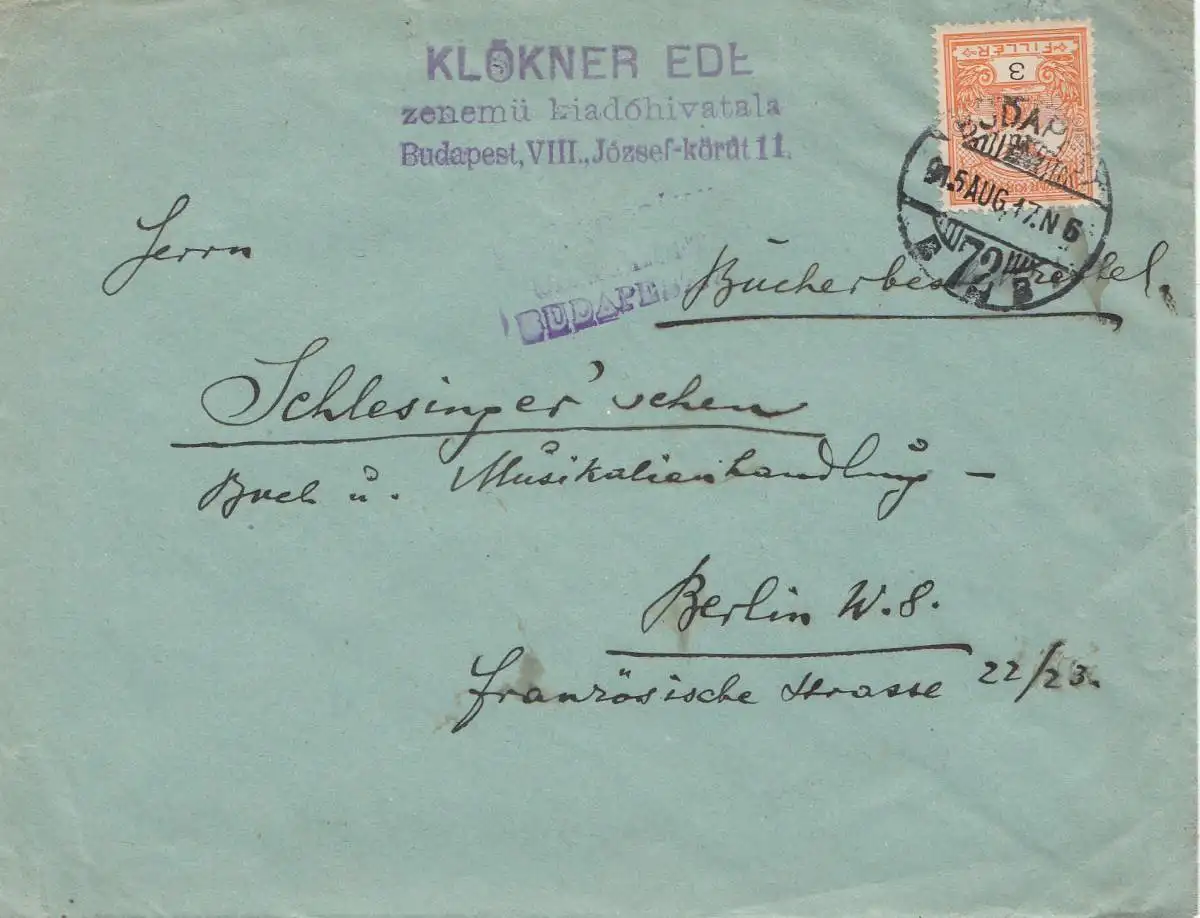 KLŐKNER EDE
zenemü kiadóhivatala
Budapest, VIII., József-körút 11.
FILLÉR
3
BUDAP
915 AUG. 17. N 6
72
BUDAPES
Herrn
Bücherbes zettel.
Schlesinger'schen
Buch u. Musikalienhandlung -
Berlin W. 8.
Französische Strasse 22/23.